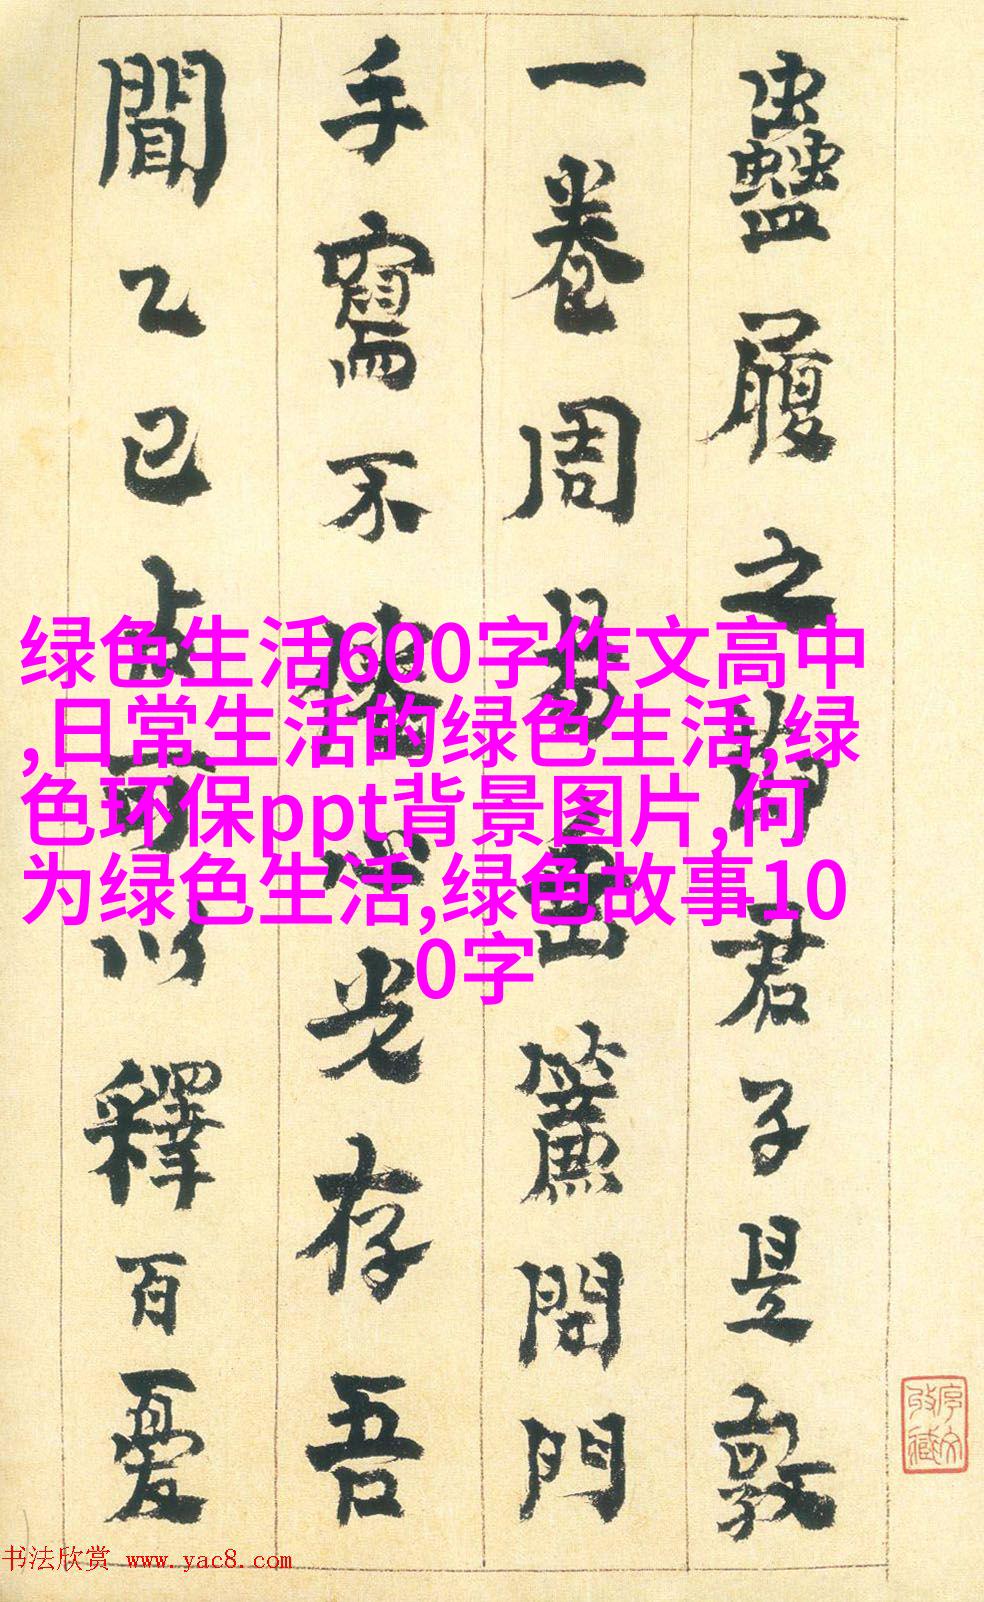 蠱履之節君子是敦
一卷周易垂簾閉門
手寫不心光存吾
聞乙巳占可以釋百憂
绿色生活600字作文高中
,日常生活的绿色生活,绿
色环保ppt背景图片,何
为绿色生活,绿色故事10
0字
书法欣赏 www.yac8.com